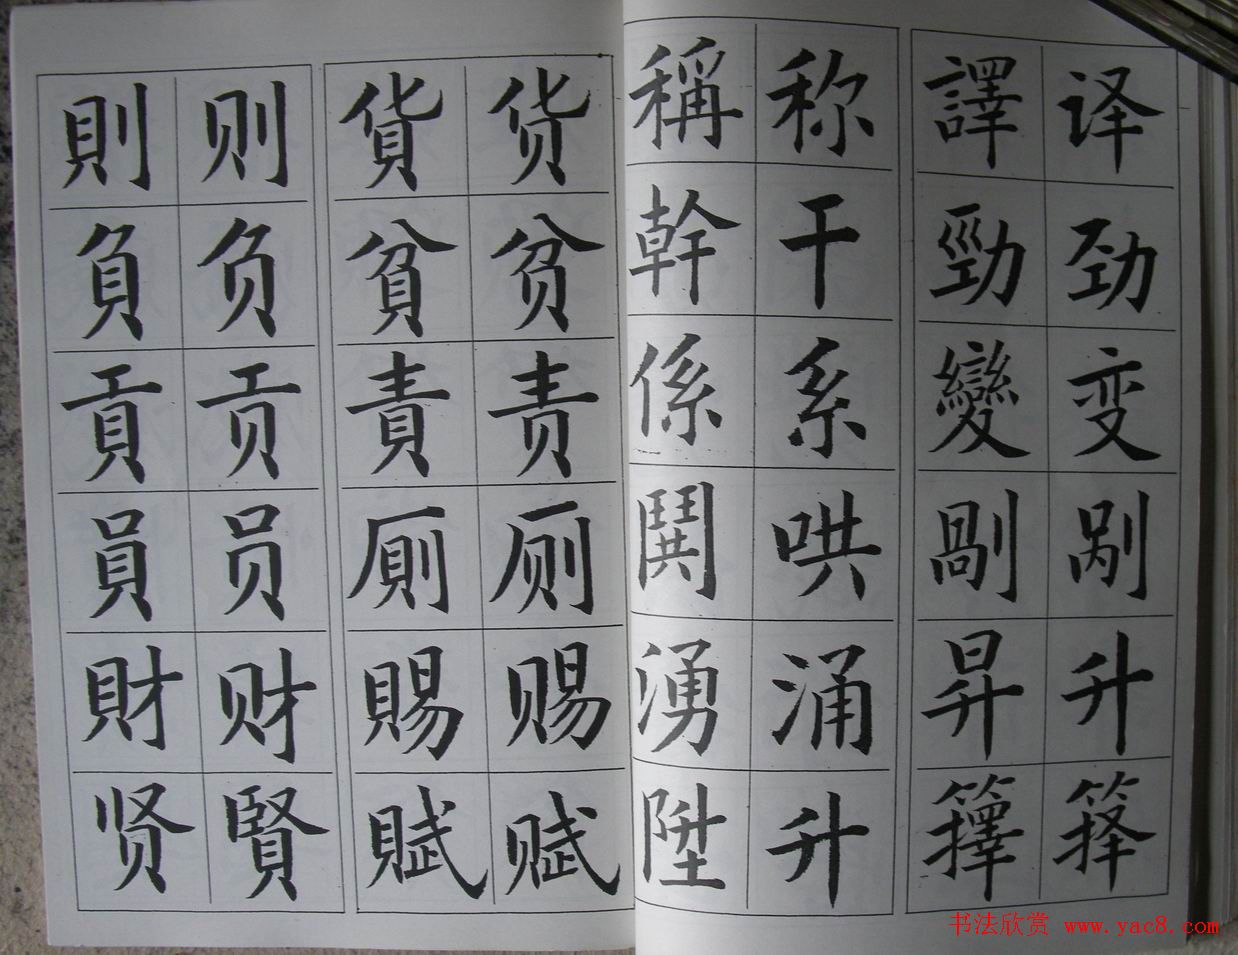 則 则 貨 货 稱 称 譯 译
負 负 貧 贫 幹 干 勁 劲
貢 贡 責 责 係 系 變 变
員 员 廁 厕 鬨 哄 剮 剐
財 财 賜 赐 湧 涌 昇 升
贤 賢 賦 赋 陞 升 籜 箨
书法欣赏 www.yac8.com